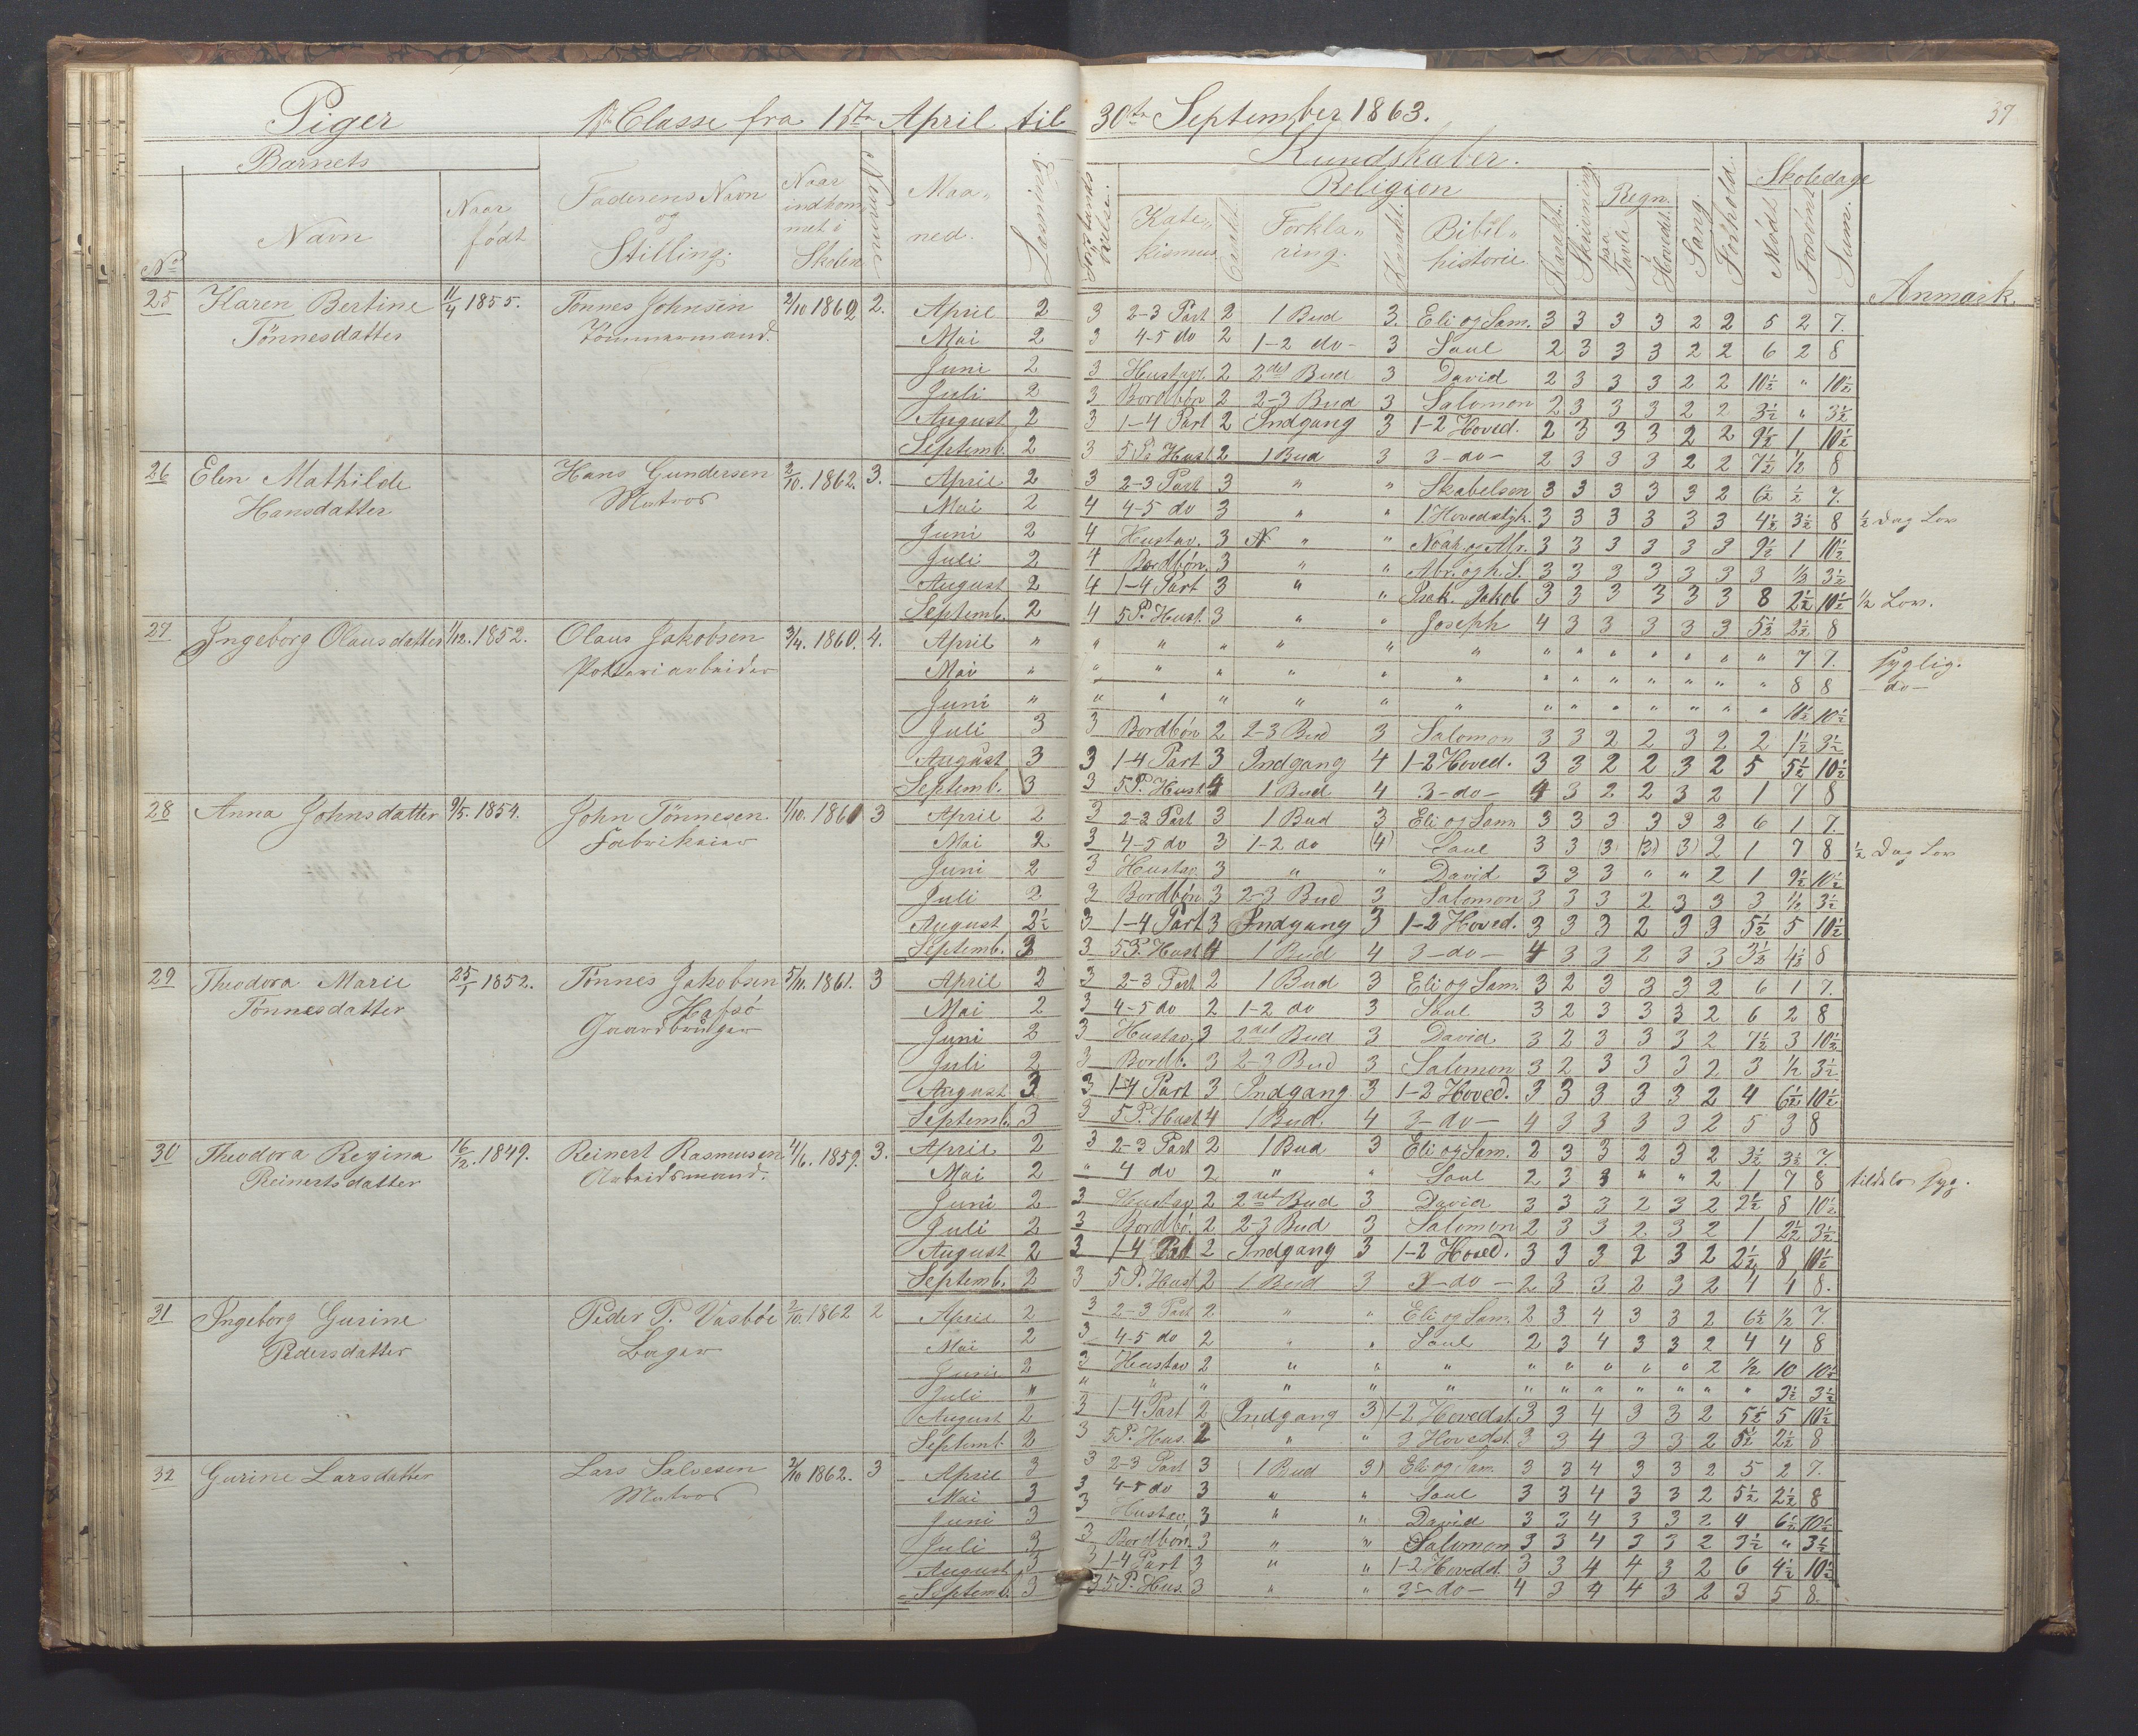 Piger 1ste Classe fra 1ste April til 30te September 1863. 37
Barnets Kundskaber. Skoledage
No Navn Naar født Faderens Navn og Stilling. Naar indkommet i Skolen Nummer Maaned. Læsning. Forstands øvelse. Religion Katekismus Forklaring. Bibelhistorie Karakt. Skrivning. Regn. paa Tavle Hovedt. Sang. Forhold. Mødt Forsömt Sum. Anmærk.
25 Karen Bertine 11/4 1855. Tönnes Johnsen 2/10 1862 2. April 2 3 2-3 Part 2 1 Bud 3. Eli og Sam. 3 3 3 3 2 2 5 2 7.
Tönnesdatter Tömmermand. Mai 2 3 4-5 do 2 1-2 do- 3 Saul 2 3 3 3 2 2 6 2 8
Juni 2 3 Hustav. 2 2det Bud 3 David 2 3 3 3 2 2 10½ " 10½
Juli 2 3 Bordbön 2 2-3 Bud 3 Salomon 2 3 3 3 2 2 3½ " 3½
August 2 3 1-4 Part 2 Indgang 3 1-2 Hoved. 2 3 3 3 2 2 9½ 1 10½
Septemb. 2 3 5 P. Hust 2 1 Bud 3 3-do- 2 3 3 3 2 2 7½ ½ 8
26 Elen Mathilde Hans Gundersen 2/10. 1862. 3. April 2 3 2-3 Part 3 " " Skabelsen 3 3 3 3 3 2 6½ ½ 7.
Hansdatter Matros Mai 2 4 4-5 do 3 " " 1. Hovedstyk. 3 3 3 3 3 3 4½ 3½ 8 ½ Dag Lov
Juni 2 4 Hustav. 3 " " Noah og Abr. 3 3 3 3 3 3 9½ 1 10½
Juli 2 4 Bordbön. 3 " " Abr. og h. S. 3 3 3 3 3 3 3 ½ 3½
August 2 4 1-4 Part 3 " " Isak. Jakob 3 3 3 3 3 3 8 2½ 10½ ½ Lov.
Septemb. 2 4 5 P. Hust. 3 " " Joseph 4 3 3 3 3 3 5½ 2½ 8
27 Ingeborg Olausdatter 1/12. 1852. Olaus Jakobsen 3/4. 1860. 4. April " " " " " " " " " " " " " " 7 7. syglig.
Pottariarbeider Mai " " " " " " " " " " " " " " 8 8 -do-
Juni " " " " " " " " " " " " " " 10½ 10½
Juli 3 3 Bordbön 2 2-3 Bud 3 Salomon 3 3 2 2 3 2 2 1½ 3½
August 3 3 1-4 Part 3 Indgang 4 1-2 Hoved. 3 3 2 2 3 2 5 5½ 10½
Septemb. 3 3 5 P. Hust 4 1 Bud 4 3-do- 4 3 2 2 3 2 1 7 8
28 Anna Johnsdatter 9/5. 1854. John Tönnesen. 1/10. 1861 3 April 2 3 2-3 Part 3 1 Bud 3 Eli og Sam 3 3 3 3 3 2 6 1 7.
Fabrikeier Mai 2 3 4-5 do 3 1-2 do (4) Saul 3 3 (3) (3) 3) 2 1 7 8 ½ Dag Lov
Juni 2 3 Hustav. 3 " " David 3 3 3 " " 2 1 9½ 10½
Juli 2 3 Bordbön 3 2-3 Bud 3 Salomon 3 3 3 2 3 3 3 ½ 3½
August 2½ 3 1-4 Part 3 Indgang 3 1-2 Hoved. 3 3 3 2 3 3 5½ 5 10½
Septemb. 3 3 5 P. Hust 4 1 Bud 4 3-do- 4 3 3 2 3 3 3½ 4½ 8
29 Theodora Marie 25/1 1852. Tönnes Jakobsen 5/11. 1861. 3 April 2 3 2-3 Part 2 1 Bud 3 Eli og Sam. 3 2 3 3 3 2 6 1 7.
Tönnesdatter Hafsö Mai 2 3 4-5 do 2 1-2 do 3 Saul 3 2 3 3 3 2 6 2 8
Gaardbruger Juni 2 3 Hustav. 3 2det Bud 3 David 3 2 3 3 3 2 7½ 3 10½
Juli 2 3 Bordb. 3 2-3 Bud 3 Salomon 3 2 3 3 3 2 3 ½ 3½
August 3 3 1-4 Part 3 Indgang 3 1-2 Hoved. 3 3 3 3 3 2 4 6½ 10½
Septemb. 3 3 5 P. Hust 4 1 Bud. 4 3-do- 4 3 3 3 3 2 5 3 8
30 Theodora Regina 16/2. 1849. Reinert Rasmusen 4/6. 1859. 3. April 2 3 2-3 Part 2 1 Bud 3 Eli og Sam. 2 3 3 2 3 2 3½ 3½ 7.
Reinertsdatter Arbeidsmand. Mai 2 " 4 do 2 " " Saul 2 3 3 " " 2 1 7 8 tildels syg.
Juni 2 3 Hustav 2 2det Bud 3 David 3 3 3 2 3 2 2½ 8 10½
Juli 2 3 Bordbö. 2 2-3 Bud 3 Salomon 2 3 3 2 3 2 1 2½ 3½
August 2 3 1-4 Part 2 Indgang 3 1-2 Hoved. 3 3 3 2 3 2 2½ 8 10½
Septemb. 2 3 5 P. Hust 2 1 Bud 3 3-do- 2 3 3 2 3 2 4 4 8.
31 Ingeborg Gurine Peder P. Vasböe 2/10. 1862 2 April 2 3 2-3 Part 2 " " Eli og Sam. 2 3 4 3 3 2 6½ ½ 7.
Pedersdatter Bager Mai 2 3 4-5 do 2 " " Saul 2 3 4 3 3 2 4 4 8
Juni 2 3 Hustav 2 " " " " " " " " 2 ½ 10 10½
Juli " " " " " " " " " " " " " " 3½ 3½
August 2 3 1-4 Part 2 (Indgang 3) 1-2 Hovedst. 3 3 4 3 3 2 5½ 5 10½
Septemb. 2 3 5 P. Hus. 2 " " 3 Hovedst. 3 3 4 3 3 2 5½ 2½ 8
32 Gurine Larsdatter Lars Salvesen 2/10 1862. 3 April 3 3 2-3 Part 3 (1 Bud 3) Eli og Sam. 3 3 4 3 3 2 5 2 7.
Matros Mai 3 3 4-5 do 3 " " Saul 3 3 4 3 3 2 5½ 2½ 8
Juni 3 3 Hustav. 3 " " David 3 3 4 3 3 2 4 6½ 10½
Juli 3 3 Bordbön. 3 " " Salomon 3 3 4 3 3 2 3½ " 3½
August 3 3 1-4 Part 3 " " 1-2 Hovedst. 3 3 4 4 3 2 6 4½ 10½
Septemb. 3 3 5 P. Hus. 3 " " 3-do- 4 3 4 4 3 2 3 5 8.